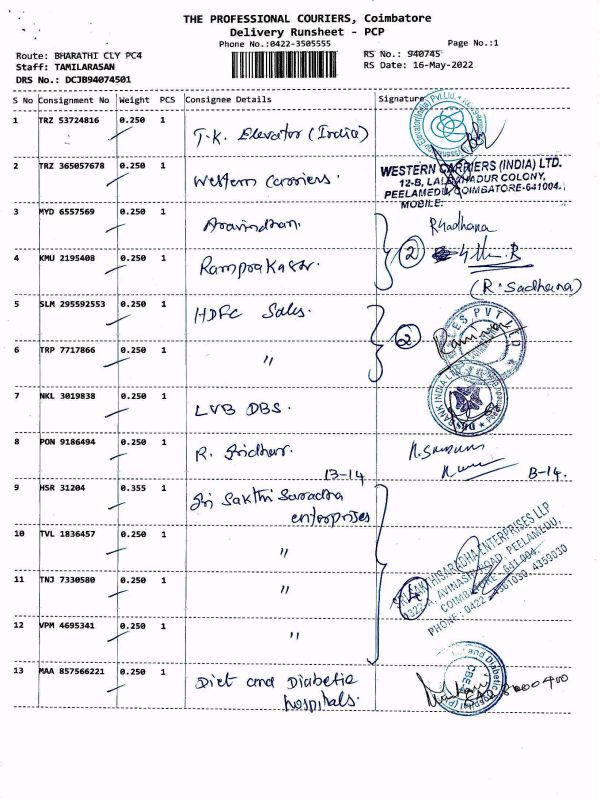 THE PROFESSIONAL COURIERS, Coimbatore
Delivery Runsheet - PCP
Phone No.:0422-3505555
Page No.:1
Route: BHARATHI CLY PC4
RS No.: 940745
Staff: TAMILARASAN
RS Date: 16-May-2022
DRS No.: DCJB94074501
S No Consignment No Weight PCS Consignee Details Signature
1 TRZ 53724816 0.250 1 T.K. Elevator (India)
2 TRZ 365057678 0.250 1 Western Carriers.
WESTERN CARRIERS (INDIA) LTD.
12-B, LAL BAHADUR COLONY,
PEELAMEDU, COIMBATORE-641004.
MOBILE:
3 MYD 6557569 0.250 1 Aravindhan.
4 KMU 2195408 0.250 1 Ramprakash.
2
(R. Sadhana)
5 SLM 295592553 0.250 1 HDFC Sales.
6 TRP 7717866 0.250 1 "
2
7 NKL 3019838 0.250 1 LVB DBS.
8 PON 9186494 0.250 1 R. Sridhar.
13-14
B-14.
9 HSR 31204 0.355 1 Sri Sakthi Saradha
enterprises
10 TVL 1836457 0.250 1 "
11 TNJ 7330580 0.250 1 "
12 VPM 4695341 0.250 1 "
4
SRI SAKTHISARADHA ENTERPRISES LLP
AVINASHI ROAD, PEELAMEDU,
COIMBATORE - 611 004.
PHONE: 0422 - 4361030 4359030
13 MAA 857566221 0.250 1 Diet and Diabetic
hospitals.